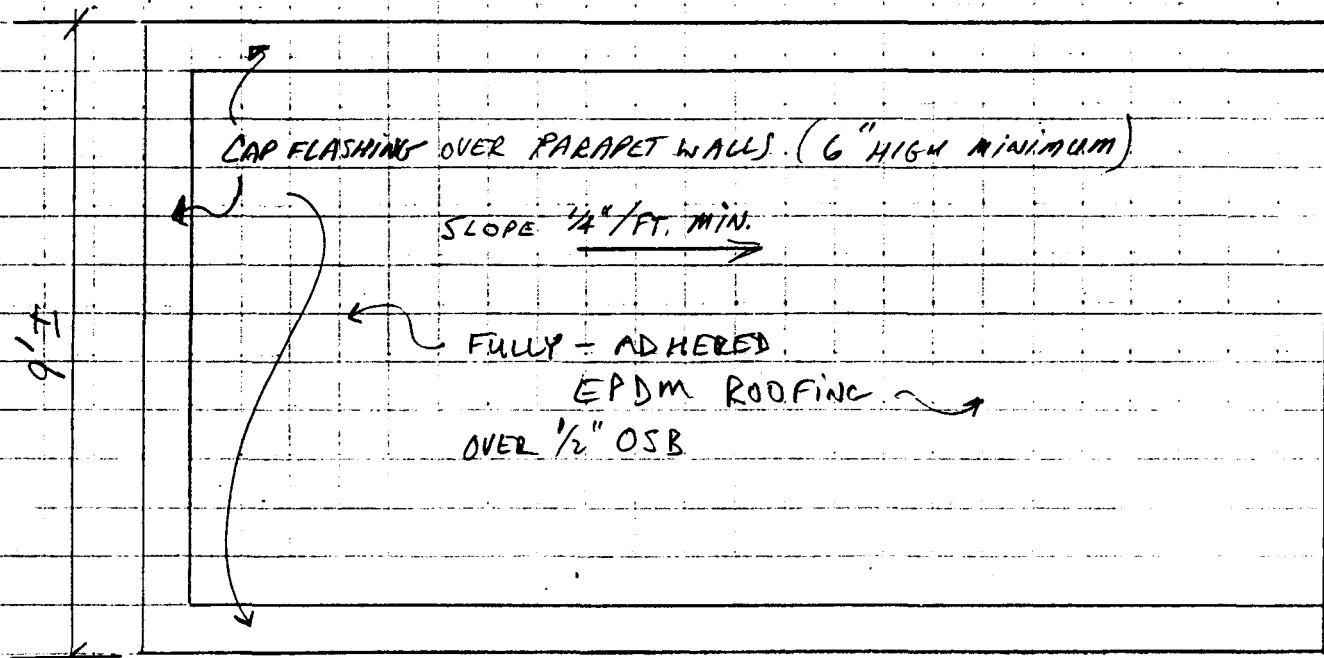 CAP FLASHING OVER PARAPET WALLS. (6" HIGH MINIMUM)
SLOPE 1/4"/FT. MIN.
9'±
FULLY - ADHERED
EPDM ROOFING
OVER 1/2" OSB